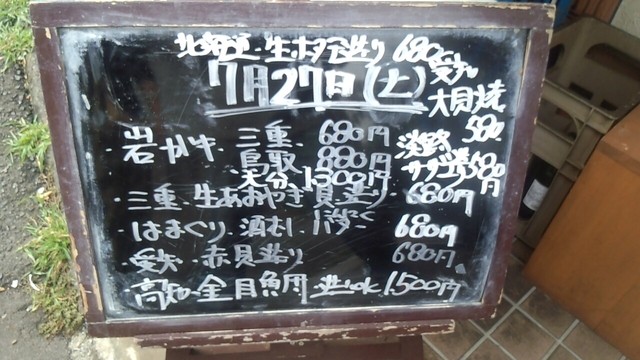 北海道・生ホタテ造り 680
7月27日(土)
愛知
大貝焼
580
・岩ガキ 三重 680円
鳥取 880円
大分 1300円
淡路
サザエ造 580円
・三重・生あおやぎ 貝造り 680円
・はまぐり 酒むし バター 680円
・愛知・赤貝造り 680円
・高知・金目鯛 1500円